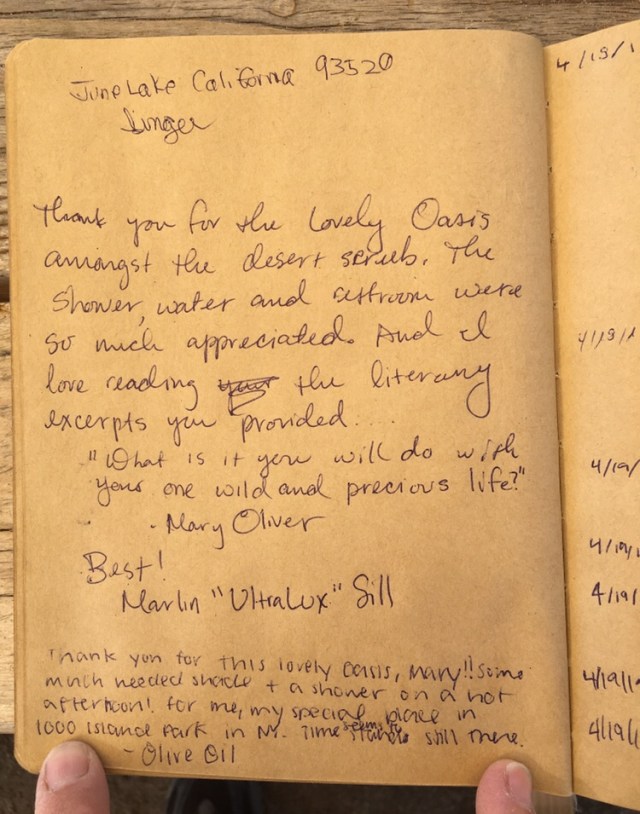 June Lake California 93520
Thank you for the lovely Oasis
amongst the desert scrub. The
shower, water and restroom were
so much appreciated. And I
love reading your the literary
excerpts you provided....
"What is it you will do with
your one wild and precious life?"
- Mary Oliver
Best!
Marlin "UltraLux" Sill
Thank you for this lovely oasis, Mary!! Some
much needed shade + a shower on a hot
afternoon! For me, my special place in
1000 Island Park in NY. Time seems to stands still there.
- Olive Oil
4/19/1
4/19/1
4/19/
4/19/1
4/19/
4/19/1
4/19/1